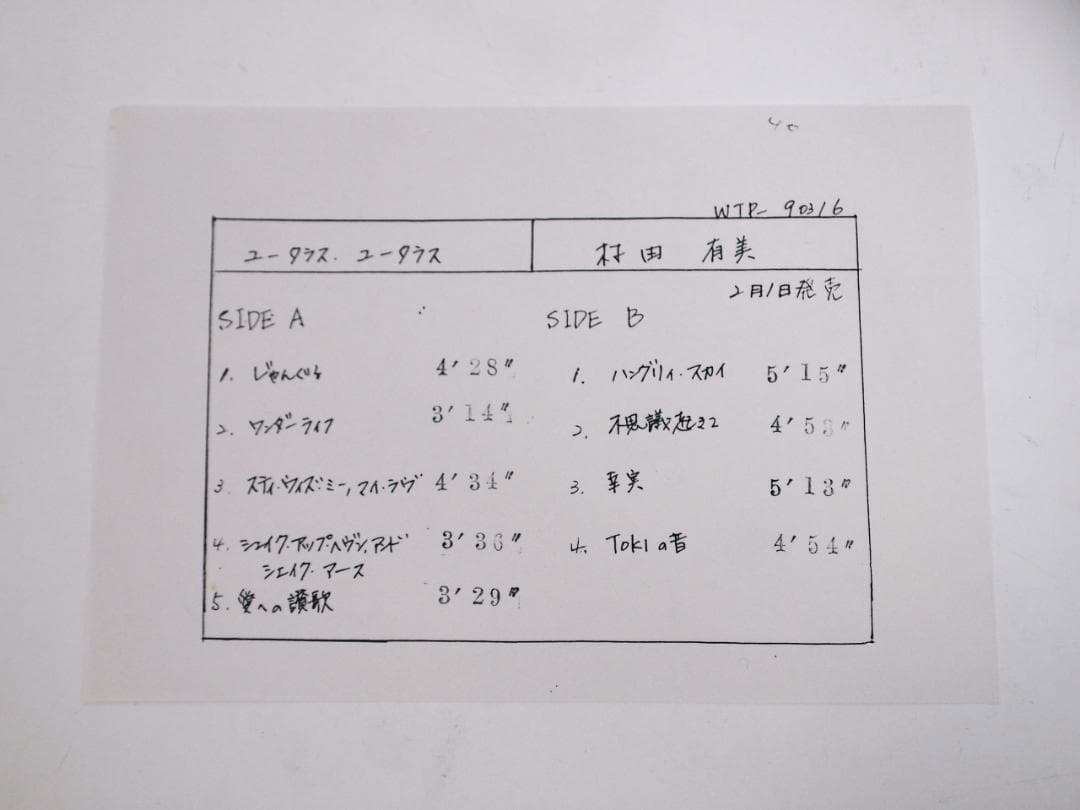 40
WTP-90316
ユータラス、ユータラス
村田 有美
2月1日発売
SIDE A
1. じゃんぐる 4'28"
2. ワンダーライフ 3'14"
3. スティ・ウィズ・ミー,マイ・ラヴ 4'34"
4. シェイク・アップ・ヘヴン,アンド
シェイク・アース 3'36"
5. 愛への讃歌 3'29"
SIDE B
1. ハングリィ・スカイ 5'15"
2. 不思議 4'53"
3. 幸実 5'13"
4. TOKIの昔 4'54"